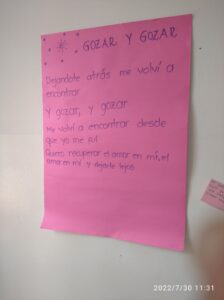 GOZAR Y GOZAR
Dejandote atrás me volví a
encontrar
Y gozar, y gozar
Me volví a encontrar desde
que yo me fui
Quiero recuperar el amor en mí, el
amor en mí y dejarte lejos
2022/7/30 11:31